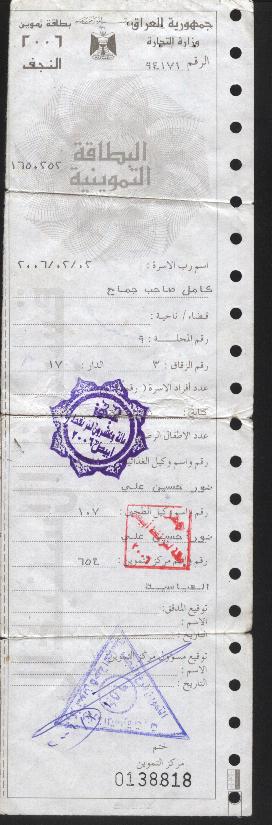 جمهورية العراق
وزارة التجارة
الرقم ٩٤١٧١
بطاقة تموين
٢٠٠٦
النجف
البطاقة
التموينية
١٦٥٠٢٥٢
اسم رب الاسرة : ٢٠٠٦/٠٢/٠٢
كامل صاحب جماح
قضاء / ناحية :
رقم المحلة : ٩
رقم الزقاق : ٣ الدار : ١٧
عدد أفراد الاسرة ( رقم
كتابة
عدد الاطفال الرضع
رقم واسم وكيل الغذائية
نور حسين علي
رقم واسم وكيل الطحين : ١٠٧
نور حسين علي
رقم واسم مركز التموين : ٦٥٤
العباسية
توقيع المدقق :
الاسم :
التاريخ :
توقيع مسؤول مركز التموين
الاسم :
التاريخ :
ختم
مركز التموين
0138818